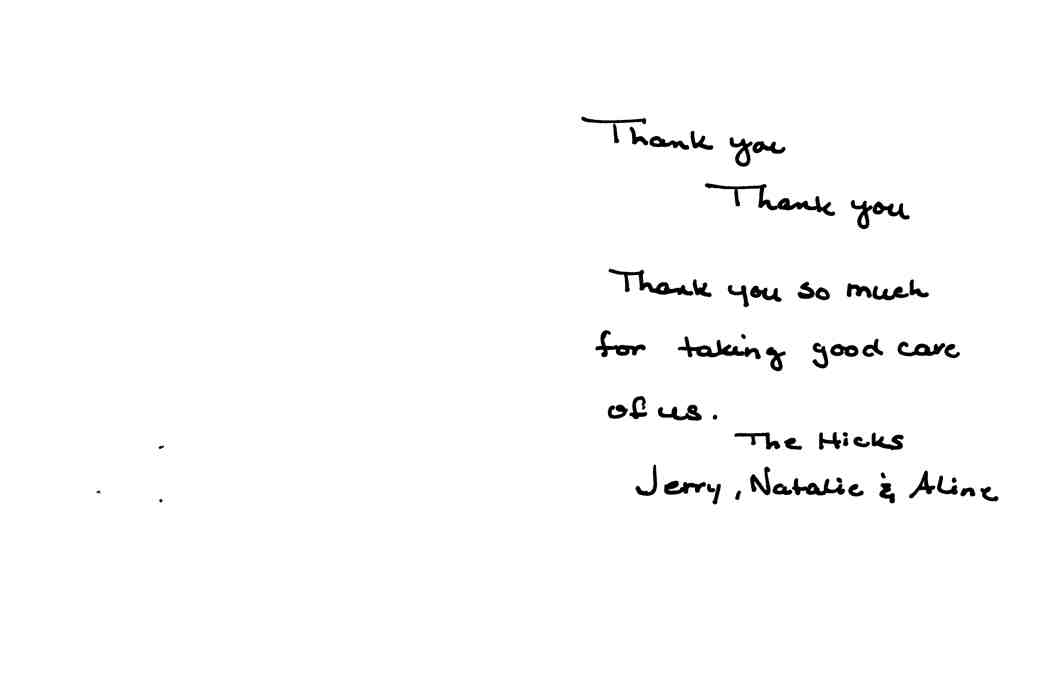 Thank you
Thank you
Thank you so much
for taking good care
of us.
The Hicks
Jerry, Natalie & Aline